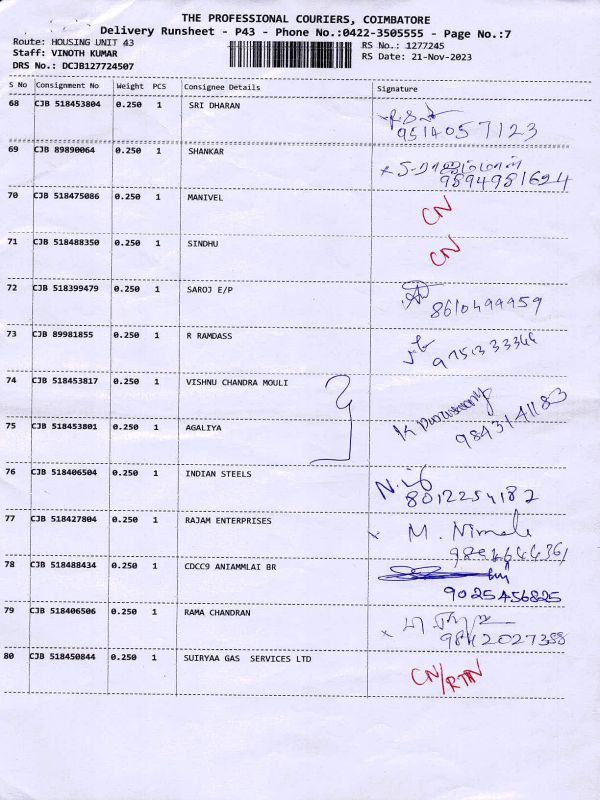 THE PROFESSIONAL COURIERS, COIMBATORE
Delivery Runsheet - P43 - Phone No.:0422-3505555 - Page No.:7
Route: HOUSING UNIT 43
RS No.: 1277245
Staff: VINOTH KUMAR
RS Date: 21-Nov-2023
DRS No.: DCJB127724507
S No Consignment No Weight PCS Consignee Details Signature
68 CJB 518453804 0.250 1 SRI DHARAN
9514057123
69 CJB 89890064 0.250 1 SHANKAR
9894981624
70 CJB 518475086 0.250 1 MANIVEL CN
71 CJB 518488350 0.250 1 SINDHU CN
72 CJB 518399479 0.250 1 SAROJ E/P
8610499959
73 CJB 89981855 0.250 1 R RAMDASS
74 CJB 518453817 0.250 1 VISHNU CHANDRA MOULI
75 CJB 518453801 0.250 1 AGALIYA K
9843141183
76 CJB 518406504 0.250 1 INDIAN STEELS
8012254182
77 CJB 518427804 0.250 1 RAJAM ENTERPRISES x M. Nirmala
78 CJB 518488434 0.250 1 CDCC9 ANIAMMLAI BR
9025456825
79 CJB 518406506 0.250 1 RAMA CHANDRAN
9842027388
80 CJB 518450844 0.250 1 SUIRYAA GAS SERVICES LTD CN/RTN